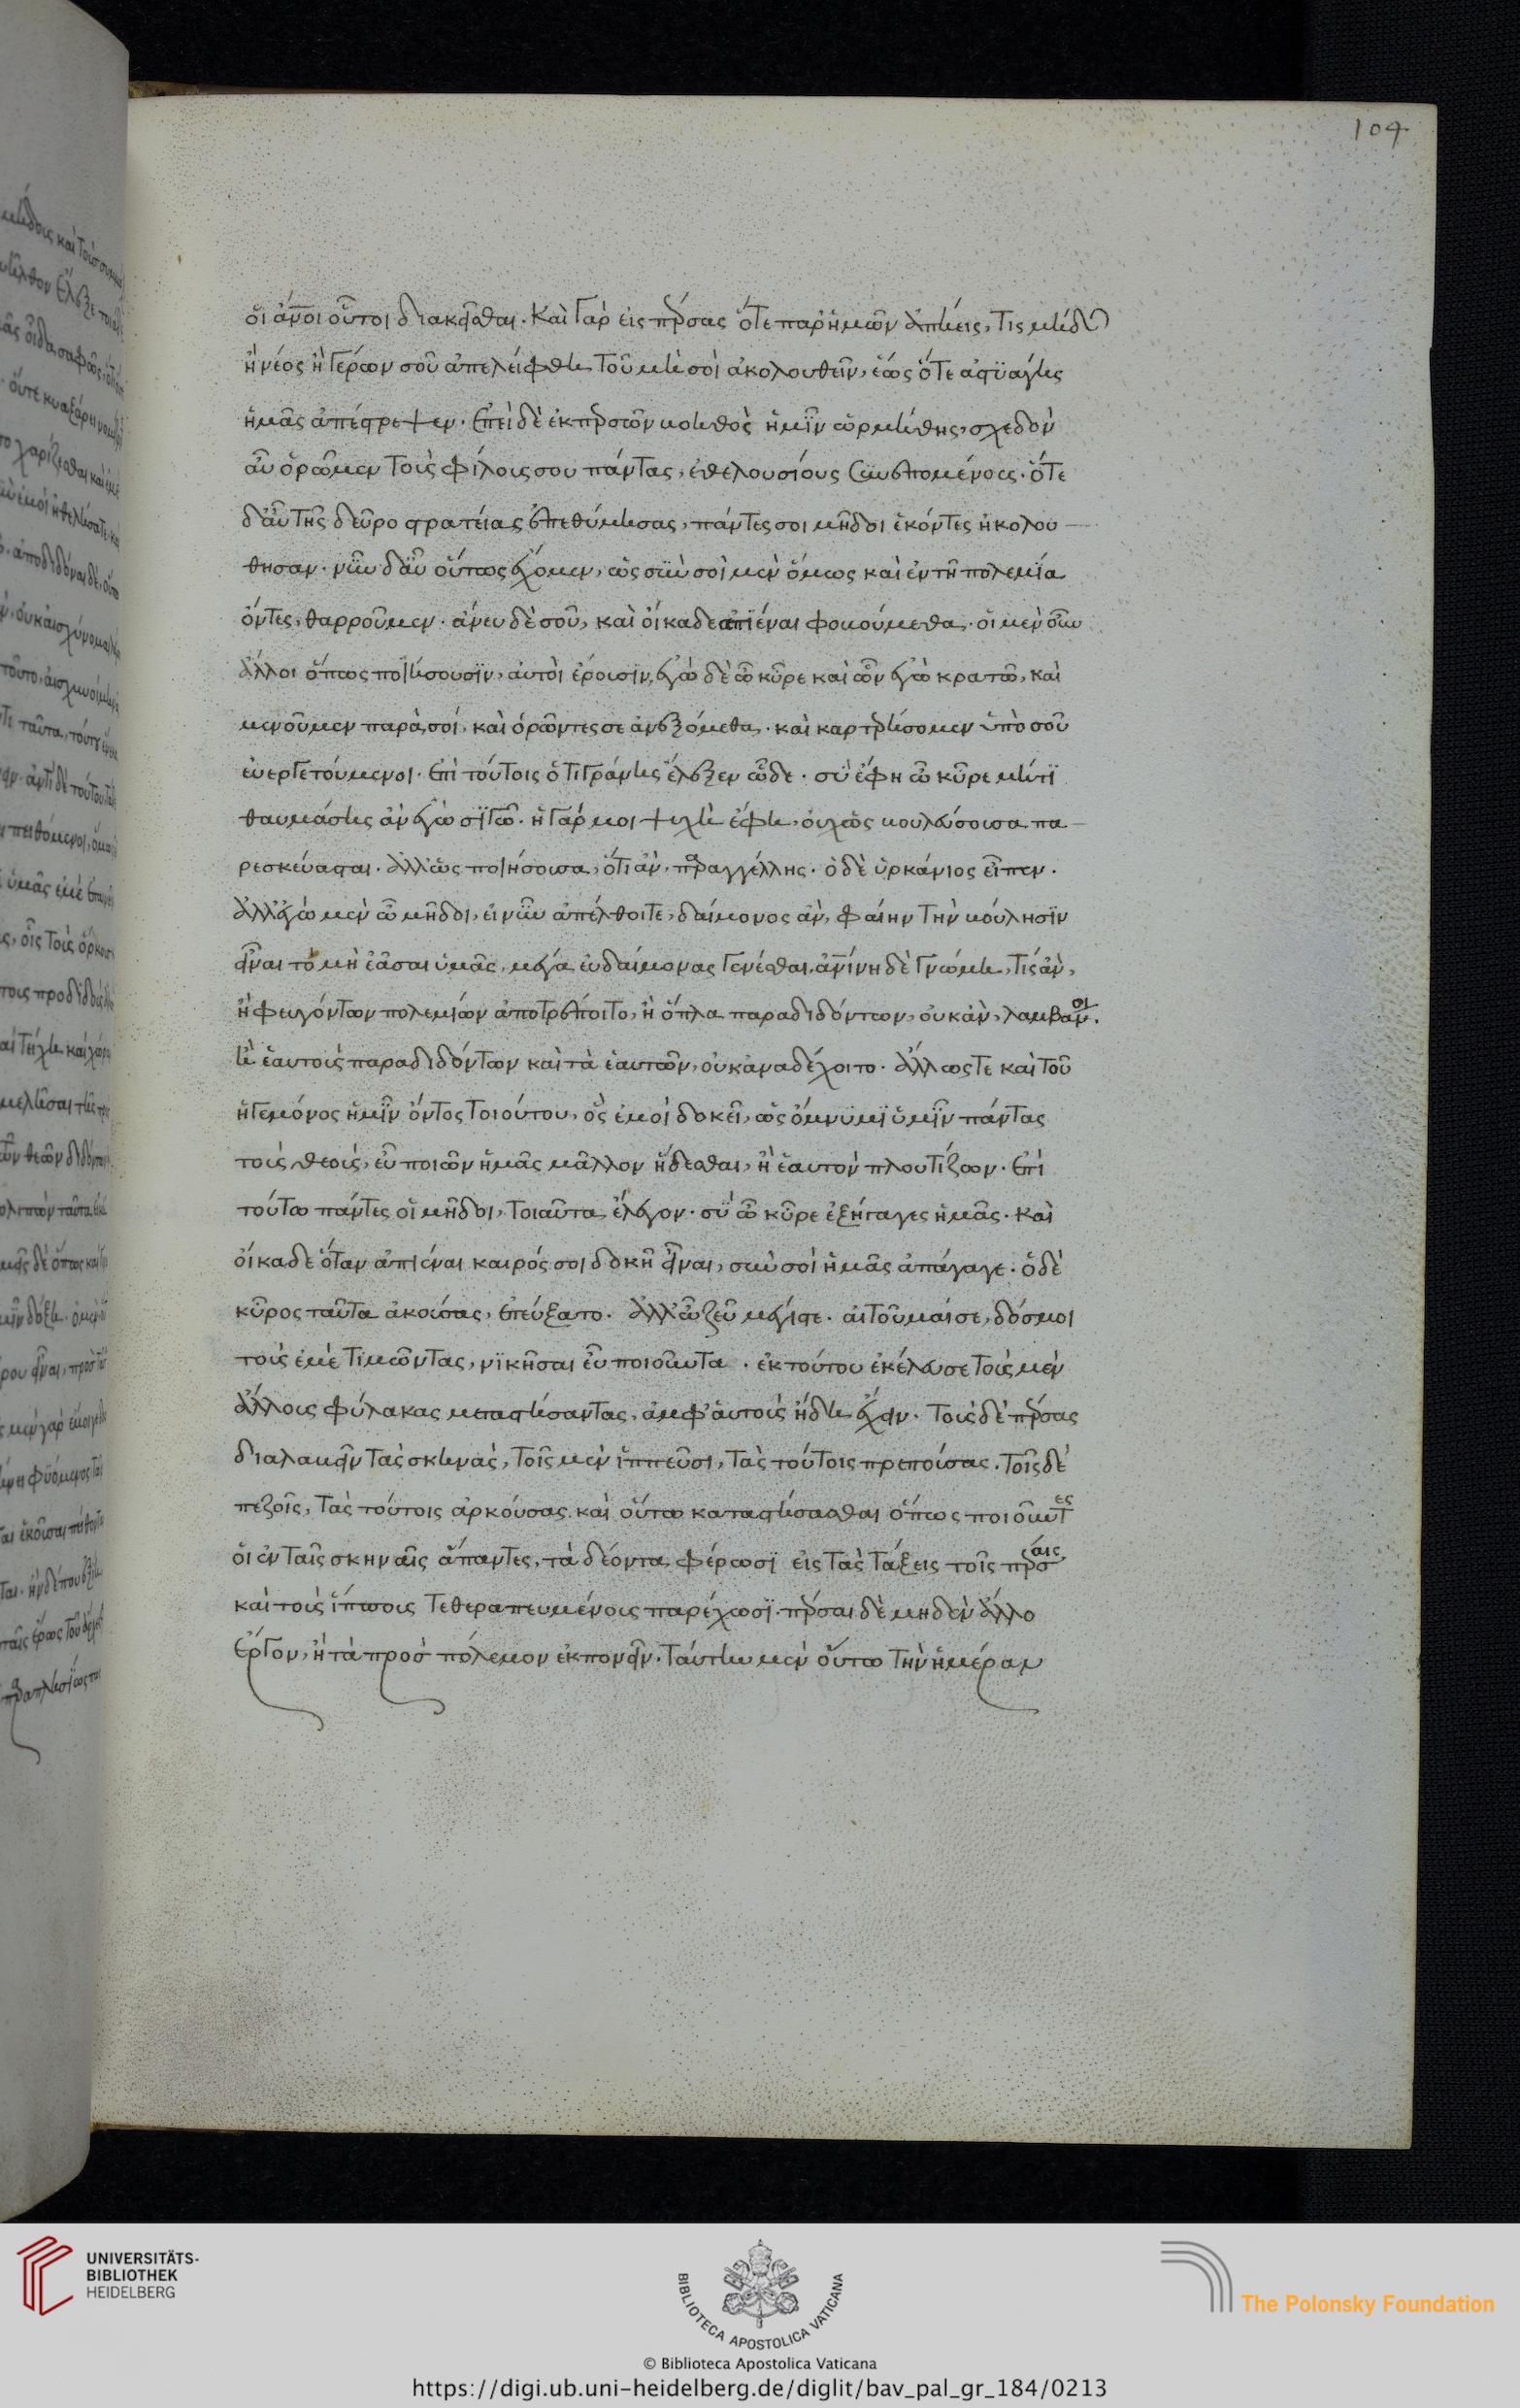 104
οἱ ἄνοι οὗτοι διακεῖσθαι. Καὶ γὰρ εἰς πέρσας ὅτε παρ' ἡμῶν ἀπήεις, τίς μήδων
ἢ νέος ἢ γέρων σοῦ ἀπελείφθη τοῦ μή σοι ἀκολουθεῖν, ἕως ὅτε ἀστυάγης
ἡμᾶς ἀπέστρεψεν. Ἐπεὶ δὲ ἐκ περσῶν βοηθὸς ἡμῖν ὡρμήθης, σχεδὸν
αὖ ὁρῶμεν τοὺς φίλους σου πάντας, ἐθελουσίους συνεπομένους. ὅτε
δ' αὖ τῆς δεῦρο στρατείας ἐπεθύμησας, πάντες σοι μῆδοι ἑκόντες ἠκολού
θησαν. νῦν δ' αὖ οὕτως ἔχομεν, ὡς σὺν σοὶ μὲν ὅμως καὶ ἐν τῇ πολεμία
ὄντες, θαρροῦμεν. ἄνευ δὲ σοῦ, καὶ οἴκαδε ἀπιέναι φοβούμεθα. οἱ μὲν οὖν
ἄλλοι ὅπως ποιήσουσιν, αὐτοὶ ἐροῦσιν, ἐγὼ δὲ ὦ κῦρε καὶ ὧν ἐγὼ κρατῶ, καὶ
μενοῦμεν παρὰ σοί, καὶ ὁρῶντες σε ἀνεξόμεθα. καὶ καρτερήσομεν ὑπὸ σοῦ
εὐεργετούμενοι. Ἐπὶ τούτοις ὁ τιγράνης ἔλεξεν ὧδε. σὺ ἔφη ὦ κῦρε μήτι
θαυμάσης ἂν ἐγὼ σιγῶ. ἡ γάρ μοι ψυχὴ ἔφη, οὐχ ὡς βουλεύσουσα πα
ρεσκεύασται. ἀλλ' ὡς ποιήσουσα, ὅτι ἂν, παραγγέλλης. ὁ δὲ ὑρκάνιος εἶπεν.
ἀλλ' ἐγὼ μὲν ὦ μῆδοι, εἰ νῦν ἀπέλθοιτε, δαίμονος ἂν, φαίην τὴν βούλησιν
εἶναι τὸ μὴ ἐᾶσαι ὑμᾶς, μέγα εὐδαίμονας γενέσθαι. ἀνίνη δὲ γνώμη, τίς ἂν,
ἢ φευγόντων πολεμίων ἀποτρέποιτο, ἢ ὅπλα παραδιδόντων, οὐκ ἂν, λαμβάνοι.
ἢ ἑαυτοὺς παραδιδόντων καὶ τὰ ἑαυτῶν, οὐκ ἀναδέχοιτο. ἄλλως τε καὶ τοῦ
ἡγεμόνος ἡμῖν ὄντος τοιούτου, ὃς ἐμοὶ δοκεῖ, ὡς ὄμνυμι ὑμῖν πάντας
τοὺς θεούς, εὖ ποιῶν ἡμᾶς μᾶλλον ἥδεσθαι, ἢ ἑαυτὸν πλουτίζων. Ἐπὶ
τούτω πάντες οἱ μῆδοι, τοιαῦτα ἔλεγον. σὺ ὦ κῦρε ἐξήγαγες ἡμᾶς. καὶ
οἴκαδε ὅταν ἀπιέναι καιρός σοι δοκῇ εἶναι, σὺν σοὶ ἡμᾶς ἀπάγαγε. ὁ δὲ
κῦρος ταῦτα ἀκούσας, ἐπεύξατο. ἀλλ' ὦ ζεῦ μέγιστε. αἰτοῦμαί σε, δός μοι
τοὺς ἐμὲ τιμῶντας, νικῆσαι εὖ ποιοῦντα. ἐκ τούτου ἐκέλευσε τοὺς μὲν
ἄλλους φύλακας καταστήσαντας, ἀμφ' αὑτοὺς ἤδη ἔχειν. τοὺς δὲ πέρσας
διαλαβεῖν τὰς σκηνάς, τοῖς μὲν ἱππεῦσι, τὰς τούτοις πρεπούσας. τοῖς δὲ
πεζοῖς, τὰς τούτοις ἀρκούσας. καὶ οὕτω καταστήσασθαι ὅπως ποιοῦντες
οἱ ἐν ταῖς σκηναῖς ἅπαντες, τὰ δέοντα φέρωσι εἰς τὰς τάξεις τοῖς πέρσαις,
καὶ τοὺς ἵππους τεθεραπευμένους παρέχωσι. πέρσαι δὲ μηδὲν ἄλλο
ἔργον, ἢ τὰ πρὸς πόλεμον ἐκπονεῖν. ταύτην μὲν οὕτω τὴν ἡμέραν
UNIVERSITÄTS-
BIBLIOTHEK
HEIDELBERG
BIBLIOTECA APOSTOLICA VATICANA
The Polonsky Foundation
© Biblioteca Apostolica Vaticana
https://digi.ub.uni-heidelberg.de/diglit/bav_pal_gr_184/0213